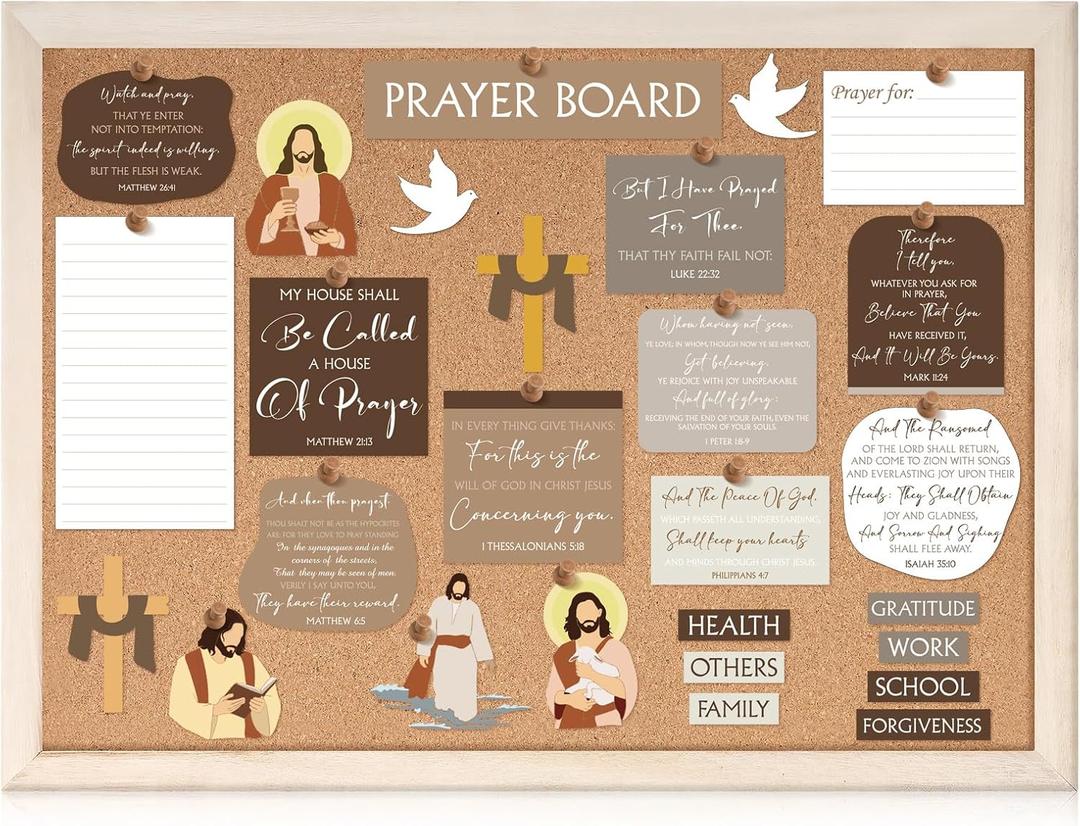 PRAYER BOARD
Watch and pray,
THAT YE ENTER
NOT INTO TEMPTATION:
the spirit indeed is willing,
BUT THE FLESH IS WEAK.
MATTHEW 26:41
Prayer for:
But I Have Prayed
For Thee,
THAT THY FAITH FAIL NOT:
LUKE 22:32
Therefore
I tell you,
WHATEVER YOU ASK FOR
IN PRAYER,
Believe That You
HAVE RECEIVED IT,
And It Will Be Yours.
MARK 11:24
MY HOUSE SHALL
Be Called
A HOUSE
Of Prayer
MATTHEW 21:13
Whom having not seen,
YE LOVE; IN WHOM, THOUGH NOW YE SEE HIM NOT,
Yet believing,
YE REJOICE WITH JOY UNSPEAKABLE
And full of glory:
RECEIVING THE END OF YOUR FAITH, EVEN THE
SALVATION OF YOUR SOULS.
1 PETER 1:8-9
IN EVERY THING GIVE THANKS:
For this is the
WILL OF GOD IN CHRIST JESUS
Concerning you.
1 THESSALONIANS 5:18
And The Ransomed
OF THE LORD SHALL RETURN,
AND COME TO ZION WITH SONGS
AND EVERLASTING JOY UPON THEIR
Heads: They Shall Obtain
JOY AND GLADNESS,
And Sorrow And Sighing
SHALL FLEE AWAY.
ISAIAH 35:10
And when thou prayest,
THOU SHALT NOT BE AS THE HYPOCRITES
ARE: FOR THEY LOVE TO PRAY STANDING
In the synagogues and in the
corners of the streets,
That they may be seen of men.
VERILY I SAY UNTO YOU,
They have their reward.
MATTHEW 6:5
And The Peace Of God,
WHICH PASSETH ALL UNDERSTANDING,
Shall keep your hearts
AND MINDS THROUGH CHRIST JESUS.
PHILIPPIANS 4:7
HEALTH
OTHERS
FAMILY
GRATITUDE
WORK
SCHOOL
FORGIVENESS